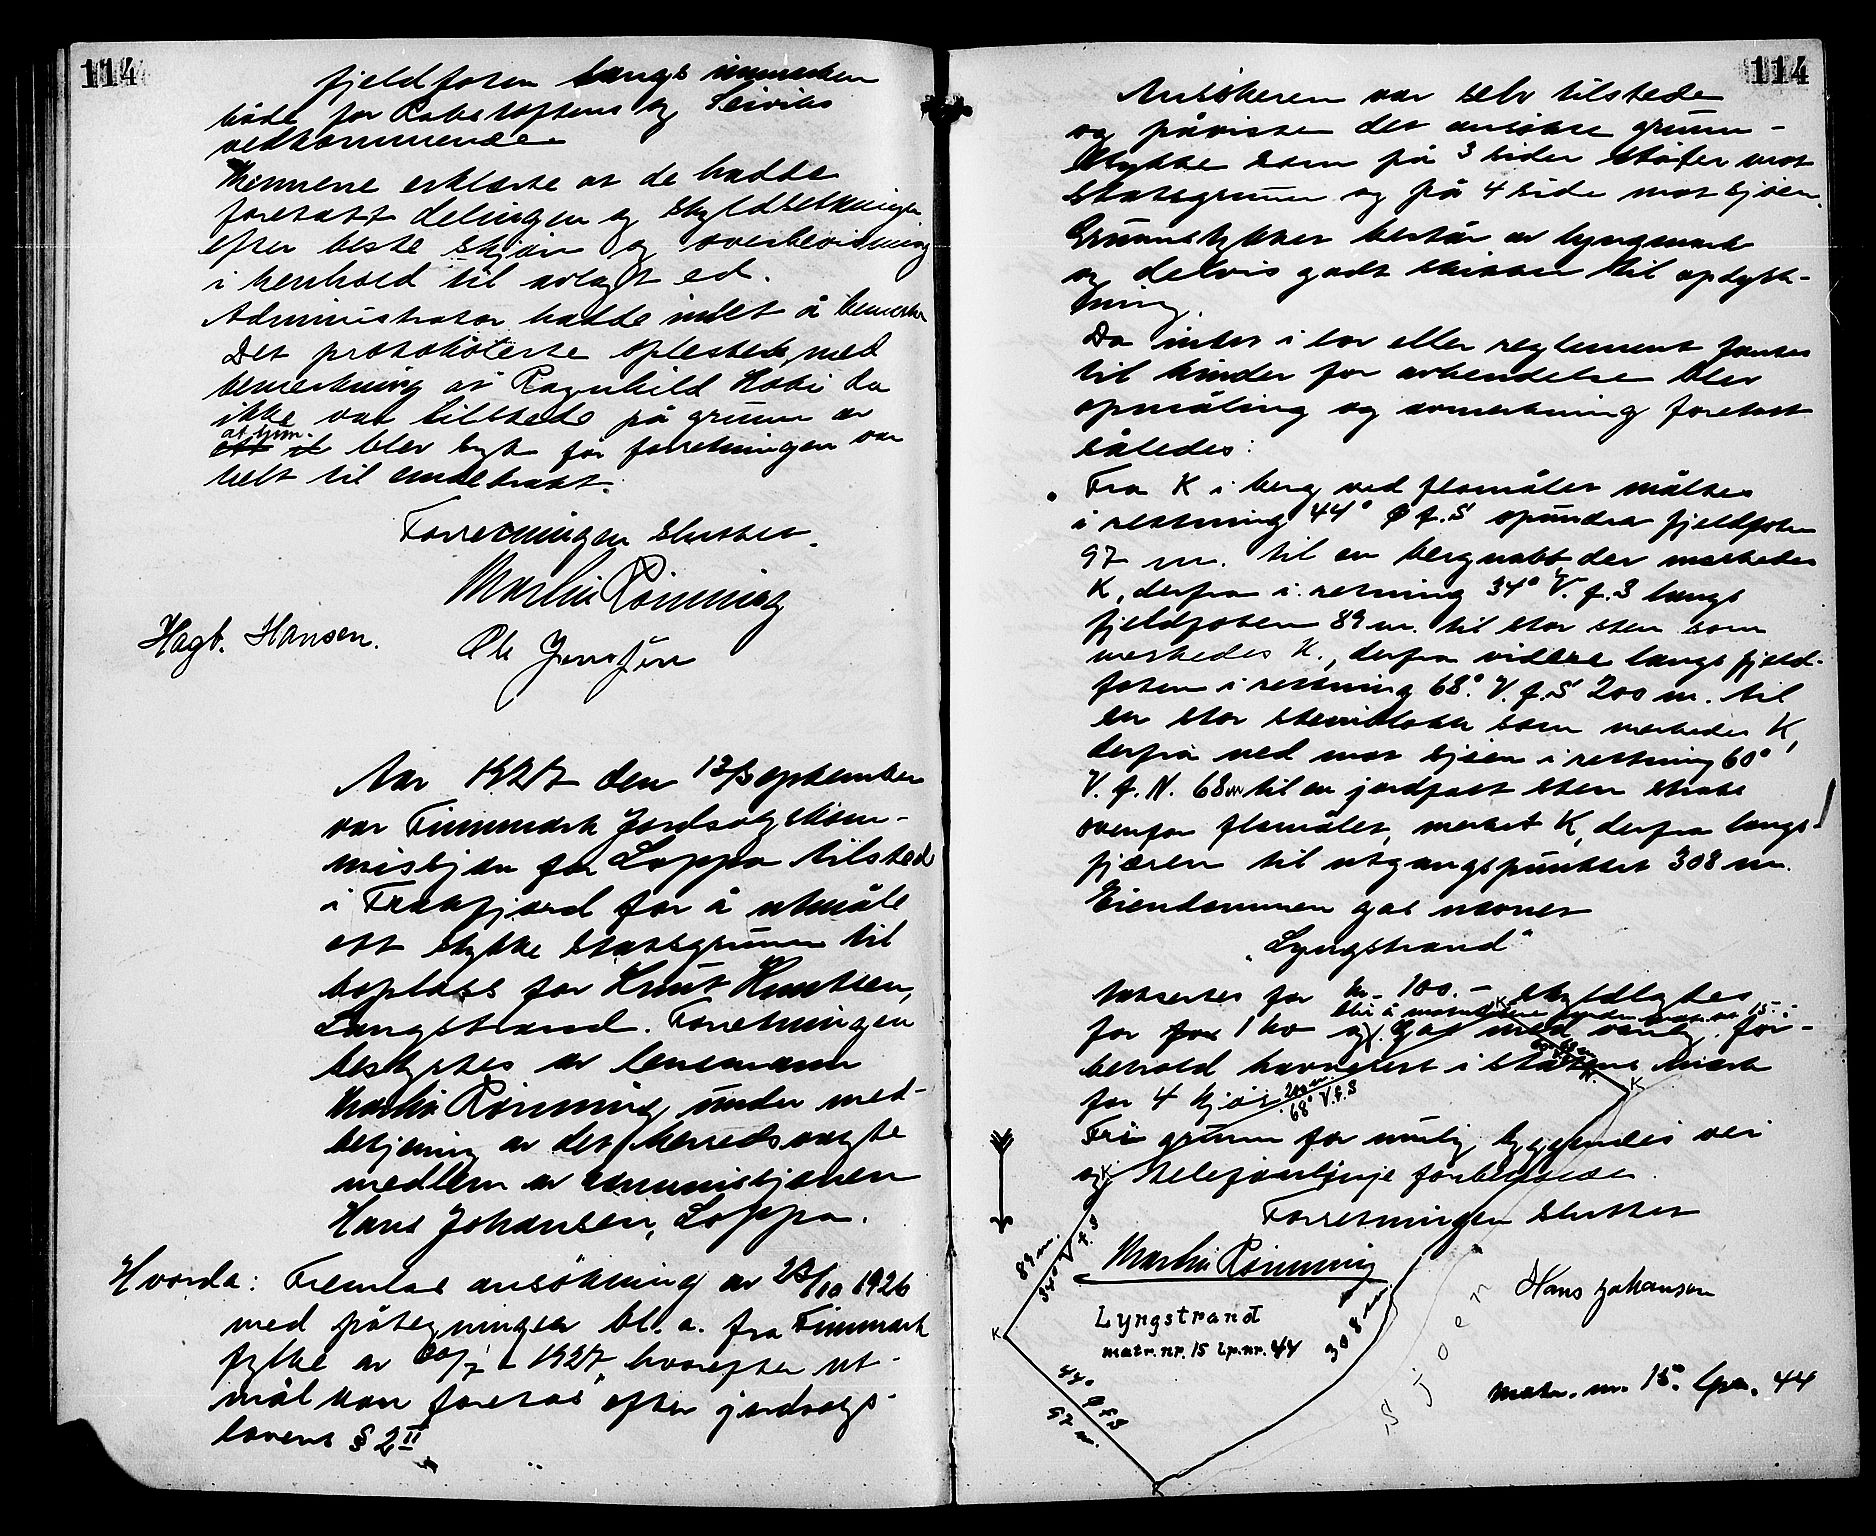 114
fjeldfoten langs innmarken
både for og Seiviks
vedkommende
Mennene erklærte at de hadde
foretatt delingen og skyldsetningen
efter beste skjøn og overbevisning
i henhold til avlagt ed.
Administrator hadde intet å bemerke
Det protokollerte oplestes, med
bemerkning at Ragnhild da
ikke var tilstede på grunn av
at hun
blev syk før forretningen var
helt til endebrakt.
Forretningen sluttet.
Martin Rønning
Hagb. Hansen.
Ole Jensen
Aar 1927 den 12/September
var Finnmark Jordsalgskom-
misjon for Loppa tilstede
i Frakfjord for å utmåle
ett stykke statsgrunn til
boplass for Knut Knutsen,
Langstrand. Forretningen
bestyrtes av lensmann
Martin Rønning under med-
betjening av det herredsvalgte
medlem av kommisjonen
Hans Johansen, Loppa.
Hvorda: Fremlas ansökning av 23/10 1926
med påtegninger bl. a. fra Finnmark
fylke av 20/7 - 1927, hvorefter ut-
mål kan foretas efter jordsalgs-
lovens § 2 II
114
Ansökeren var selv tilstede
og påviste det ansökte grunn-
stykke som på 3 sider støter mot
statsgrunn og på 4 side mot sjøen.
Grunnstykket består av lyngmark
og delvis godt skikket til opdyrk-
ning.
Da intet i lov eller reglement fantes
til hinder for avhendelse blev
opmåling og avmerkning foretatt
således:
Fra K i berg ved flomålet måltes
i rettning 44° Ø f. S opunder fjeldfoten
97 m. til en bergnabb, der merkedes
K, derfra i retning 34° V. f. S langs
fjeldfoten 89 m. til stor sten som
merkedes K., derfra videre langs fjeld-
foten i rettning 68° V. f. S 200 m. til
en stor stenblokk som merkedes K,
derfra ned mot sjøen i rettning 60°
V. f. N. 68 m til en jordfast sten strakt
ovenfor flomålet, merket K, derfra langs
fjæren til utgangspunktet 308 m.
Eiendommen gas navnet
"Lyngstrand"
taksertes for kr. 100.- skyldlagtes
blir å matrikulere under matr. nr 15-
for for 1 øre og gas med vanlig for-
behold havnerett i statens mark
for 4 kjør
Fri grunn for mulig byggendes vei
og telefonlinje forbeholdes
Forretningen sluttet
Martin Rønning
Hans Johansen
Lyngstrand
matr. nr. 15 lp. nr. 44
matr. nr. 15. lpn. 44
K
60° V.f.N
K
200 m.
68° V.f.S
K
89 m.
34° V f. S
K
44° Ø f. S
97 m.
K
308 m.
Sjøen